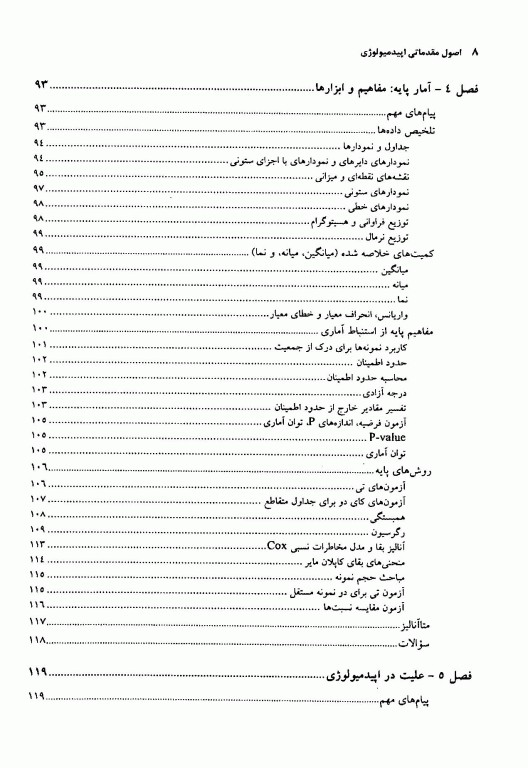 ۸ اصول مقدماتی اپیدمیولوژی
فصل ٤ - آمار پایه: مفاهیم و ابزارها ۹۳
پیام‌های مهم ۹۳
تلخیص داده‌ها ۹۳
جداول و نمودارها ۹٤
نمودارهای دایره‌ای و نمودارهای با اجزای ستونی ۹٤
نقشه‌های نقطه‌ای و میزانی ۹٥
نمودارهای ستونی ۹۷
نمودارهای خطی ۹۸
توزیع فراوانی و هسیتوگرام ۹۸
توزیع نرمال ۹۹
کمیت‌های خلاصه شده (میانگین، میانه، و نما) ۹۹
میانگین ۹۹
میانه ۹۹
نما ۹۹
واریانس، انحراف معیار و خطای معیار ۱۰۰
مفاهیم پایه از استنباط آماری ۱۰۰
کاربرد نمونه‌ها برای درک از جمعیت ۱۰۱
حدود اطمینان ۱۰۲
محاسبه حدود اطمینان ۱۰۲
درجه آزادی ۱۰۳
تفسیر مقادیر خارج از حدود اطمینان ۱۰۳
آزمون فرضیه، اندازه‌های P، توان آماری ۱۰٥
P-value ۱۰٥
توان آماری ۱۰٥
روش‌های پایه ۱۰٦
آزمون‌های تی ۱۰٦
آزمون‌های کای دو برای جداول متقاطع ۱۰۷
همبستگی ۱۰۸
رگرسیون ۱۰۹
آنالیز بقا و مدل مخاطرات نسبی Cox ۱۱۳
منحنی‌های بقای کاپلان مایر ۱۱٤
مباحث حجم نمونه ۱۱٥
آزمون تی برای دو نمونه مستقل ۱۱٥
آزمون مقایسه نسبت‌ها ۱۱٦
متاآنالیز ۱۱۷
سؤالات ۱۱۸
فصل ٥ - علیت در اپیدمیولوژی ۱۱۹
پیام‌های مهم ۱۱۹